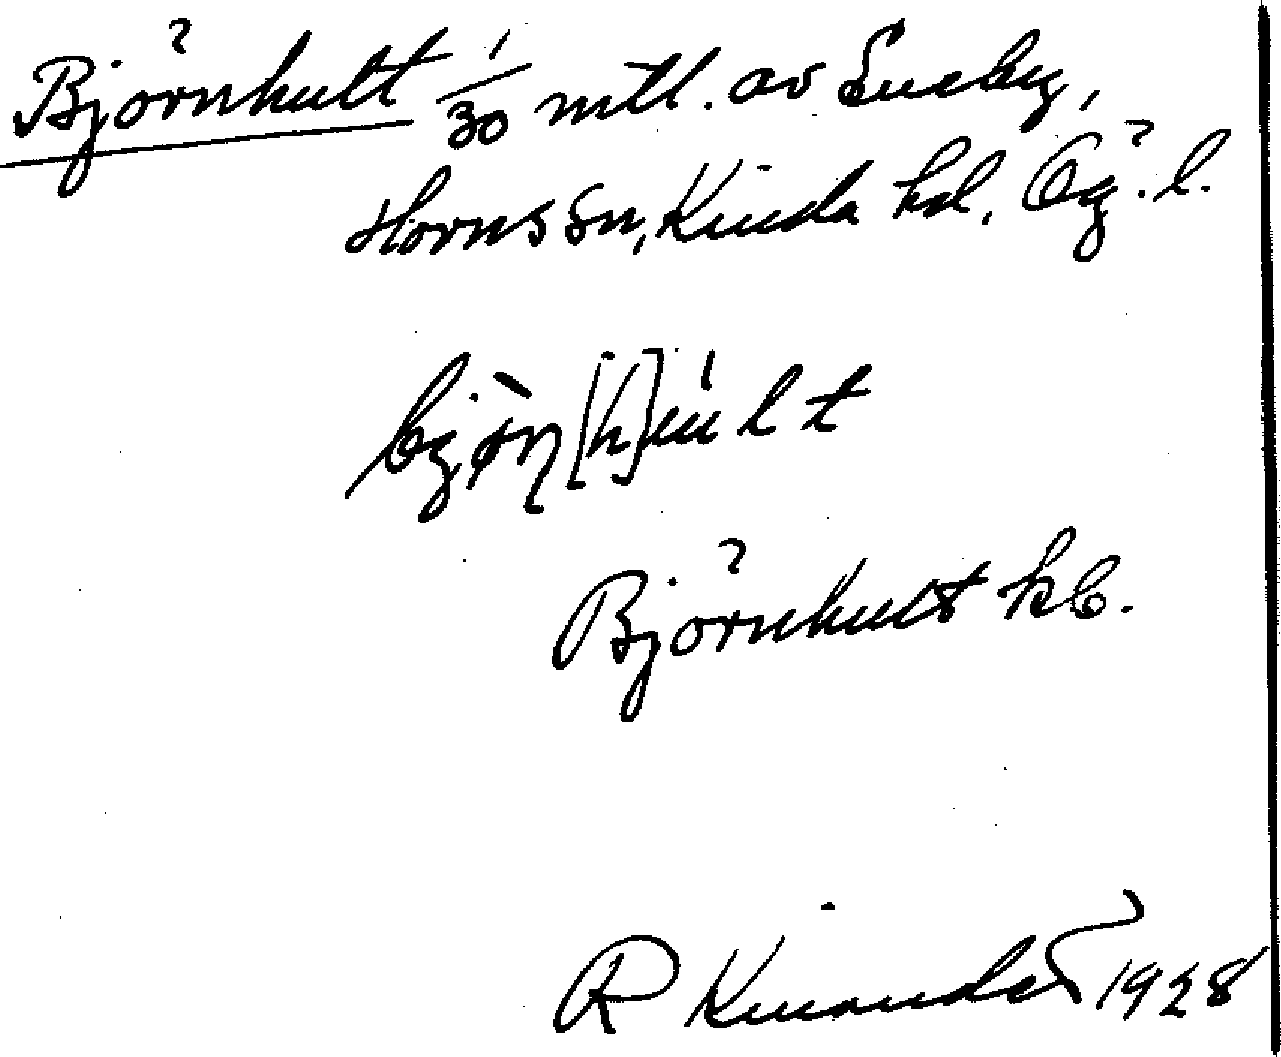 Björnhult 1/30 mtl. av Sueby,
Horns sn, Kinda hd, Ög. l.
bjön[h]ult
Björnhult kb.
R Kinander 1928